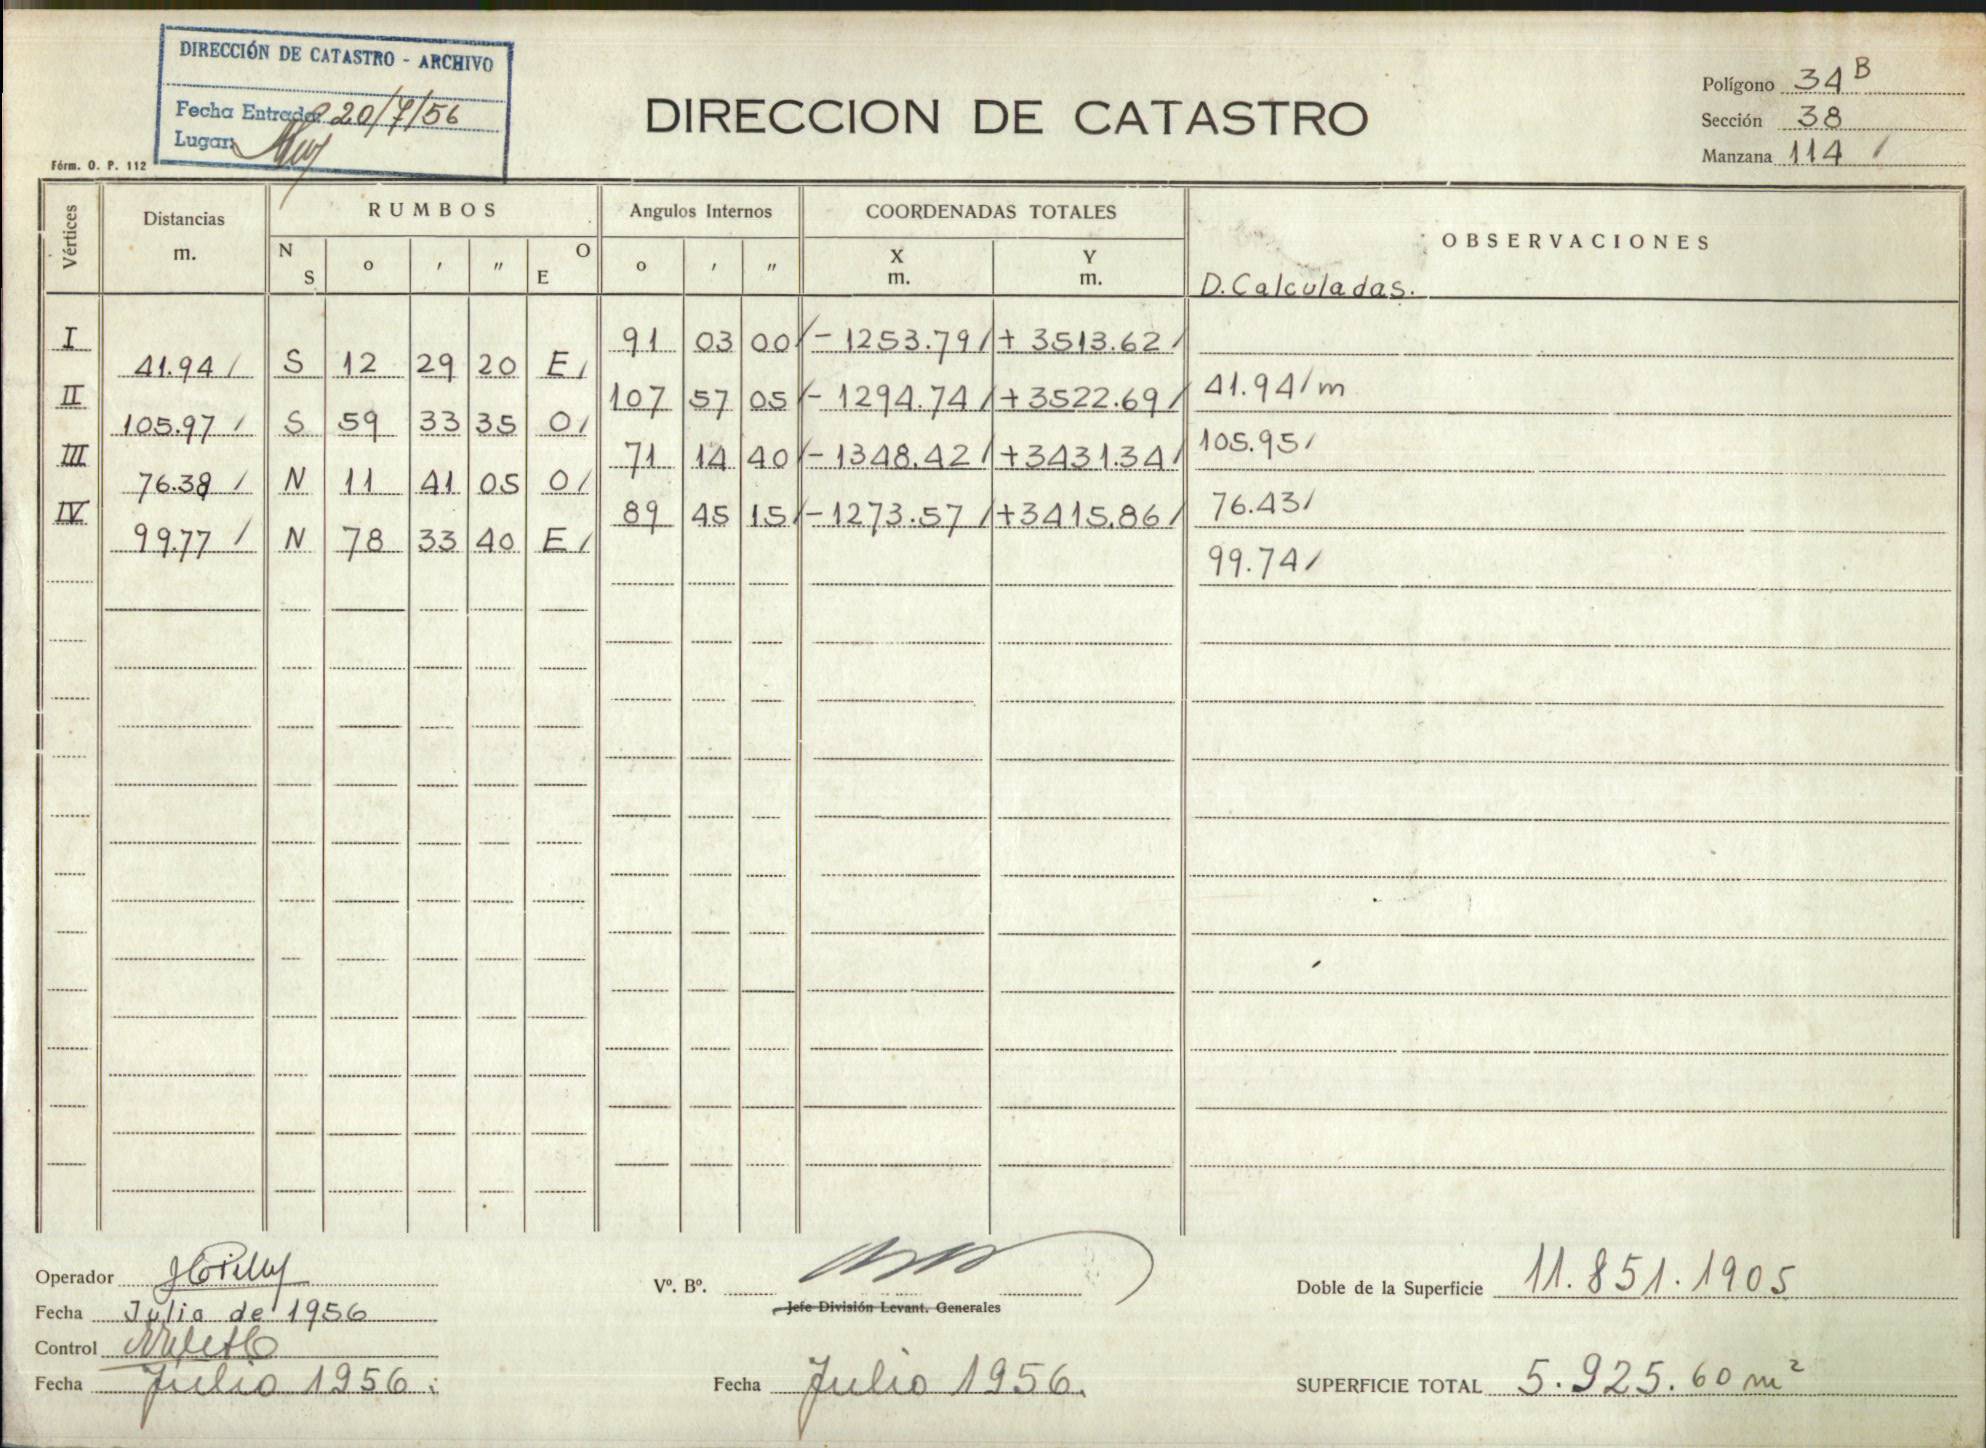 DIRECCIÓN DE CATASTRO - ARCHIVO
Fecha Entrada 20/7/56
Lugar
Fórm. O. P. 112
DIRECCION DE CATASTRO
Polígono 34 B
Sección 38
Manzana 114 /
Vértices Distancias m. RUMBOS Angulos Internos COORDENADAS TOTALES OBSERVACIONES
N S o ' " E O o ' " X m. Y m. D. Calculadas.
I 91 03 00/ - 1253.79/ + 3513.62/
41.94/ S 12 29 20 E/
II 107 57 05/ - 1294.74/ +3522.69/ 41.94/m
105.97/ S 59 33 35 O/
III 71 14 40/ - 1348.42/ +3431.34/ 105.95/
76.38/ N 11 41 05 O/
IV 89 45 15/ - 1273.57/ +3415.86/ 76.43/
99.77/ N 78 33 40 E/
99.74/
Operador
Fecha Julio de 1956
Control
Fecha Julio 1956.
Vº. Bº.
Jefe División Levant. Generales
Fecha Julio 1956.
Doble de la Superficie 11.851.1905
SUPERFICIE TOTAL 5.925.60 m²